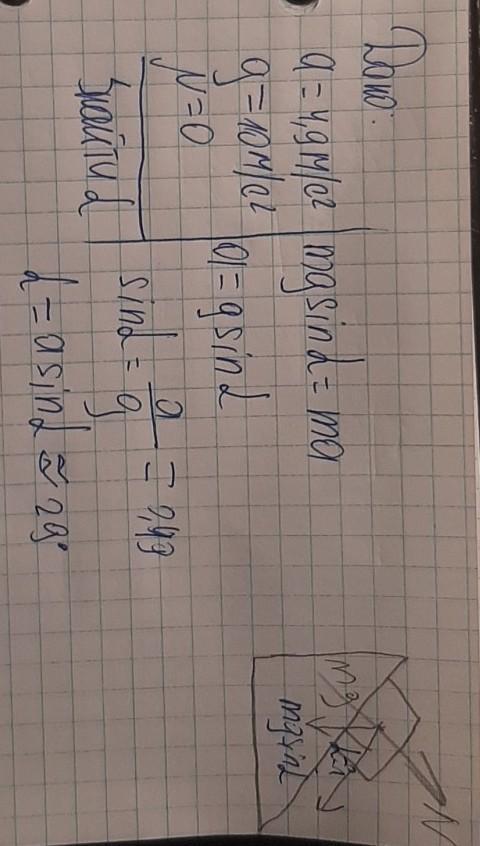 Дано:
a = 4,9 м/с²
g = 10 м/с²
μ = 0
Найти α
mgsinα = ma
a = gsinα
sinα = a/g = 0,49
α = asinα ≈ 29°
N
mg
mgsinα